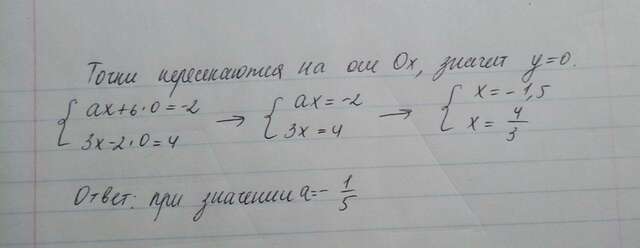 Точки пересекаются на оси Ox, значит y=0.
{ ax+6·0=-2 → { ax=-2 → { x=-1,5
{ 3x-2·0=4 { 3x=4 { x=4/3
Ответ: при значении a=-1/5